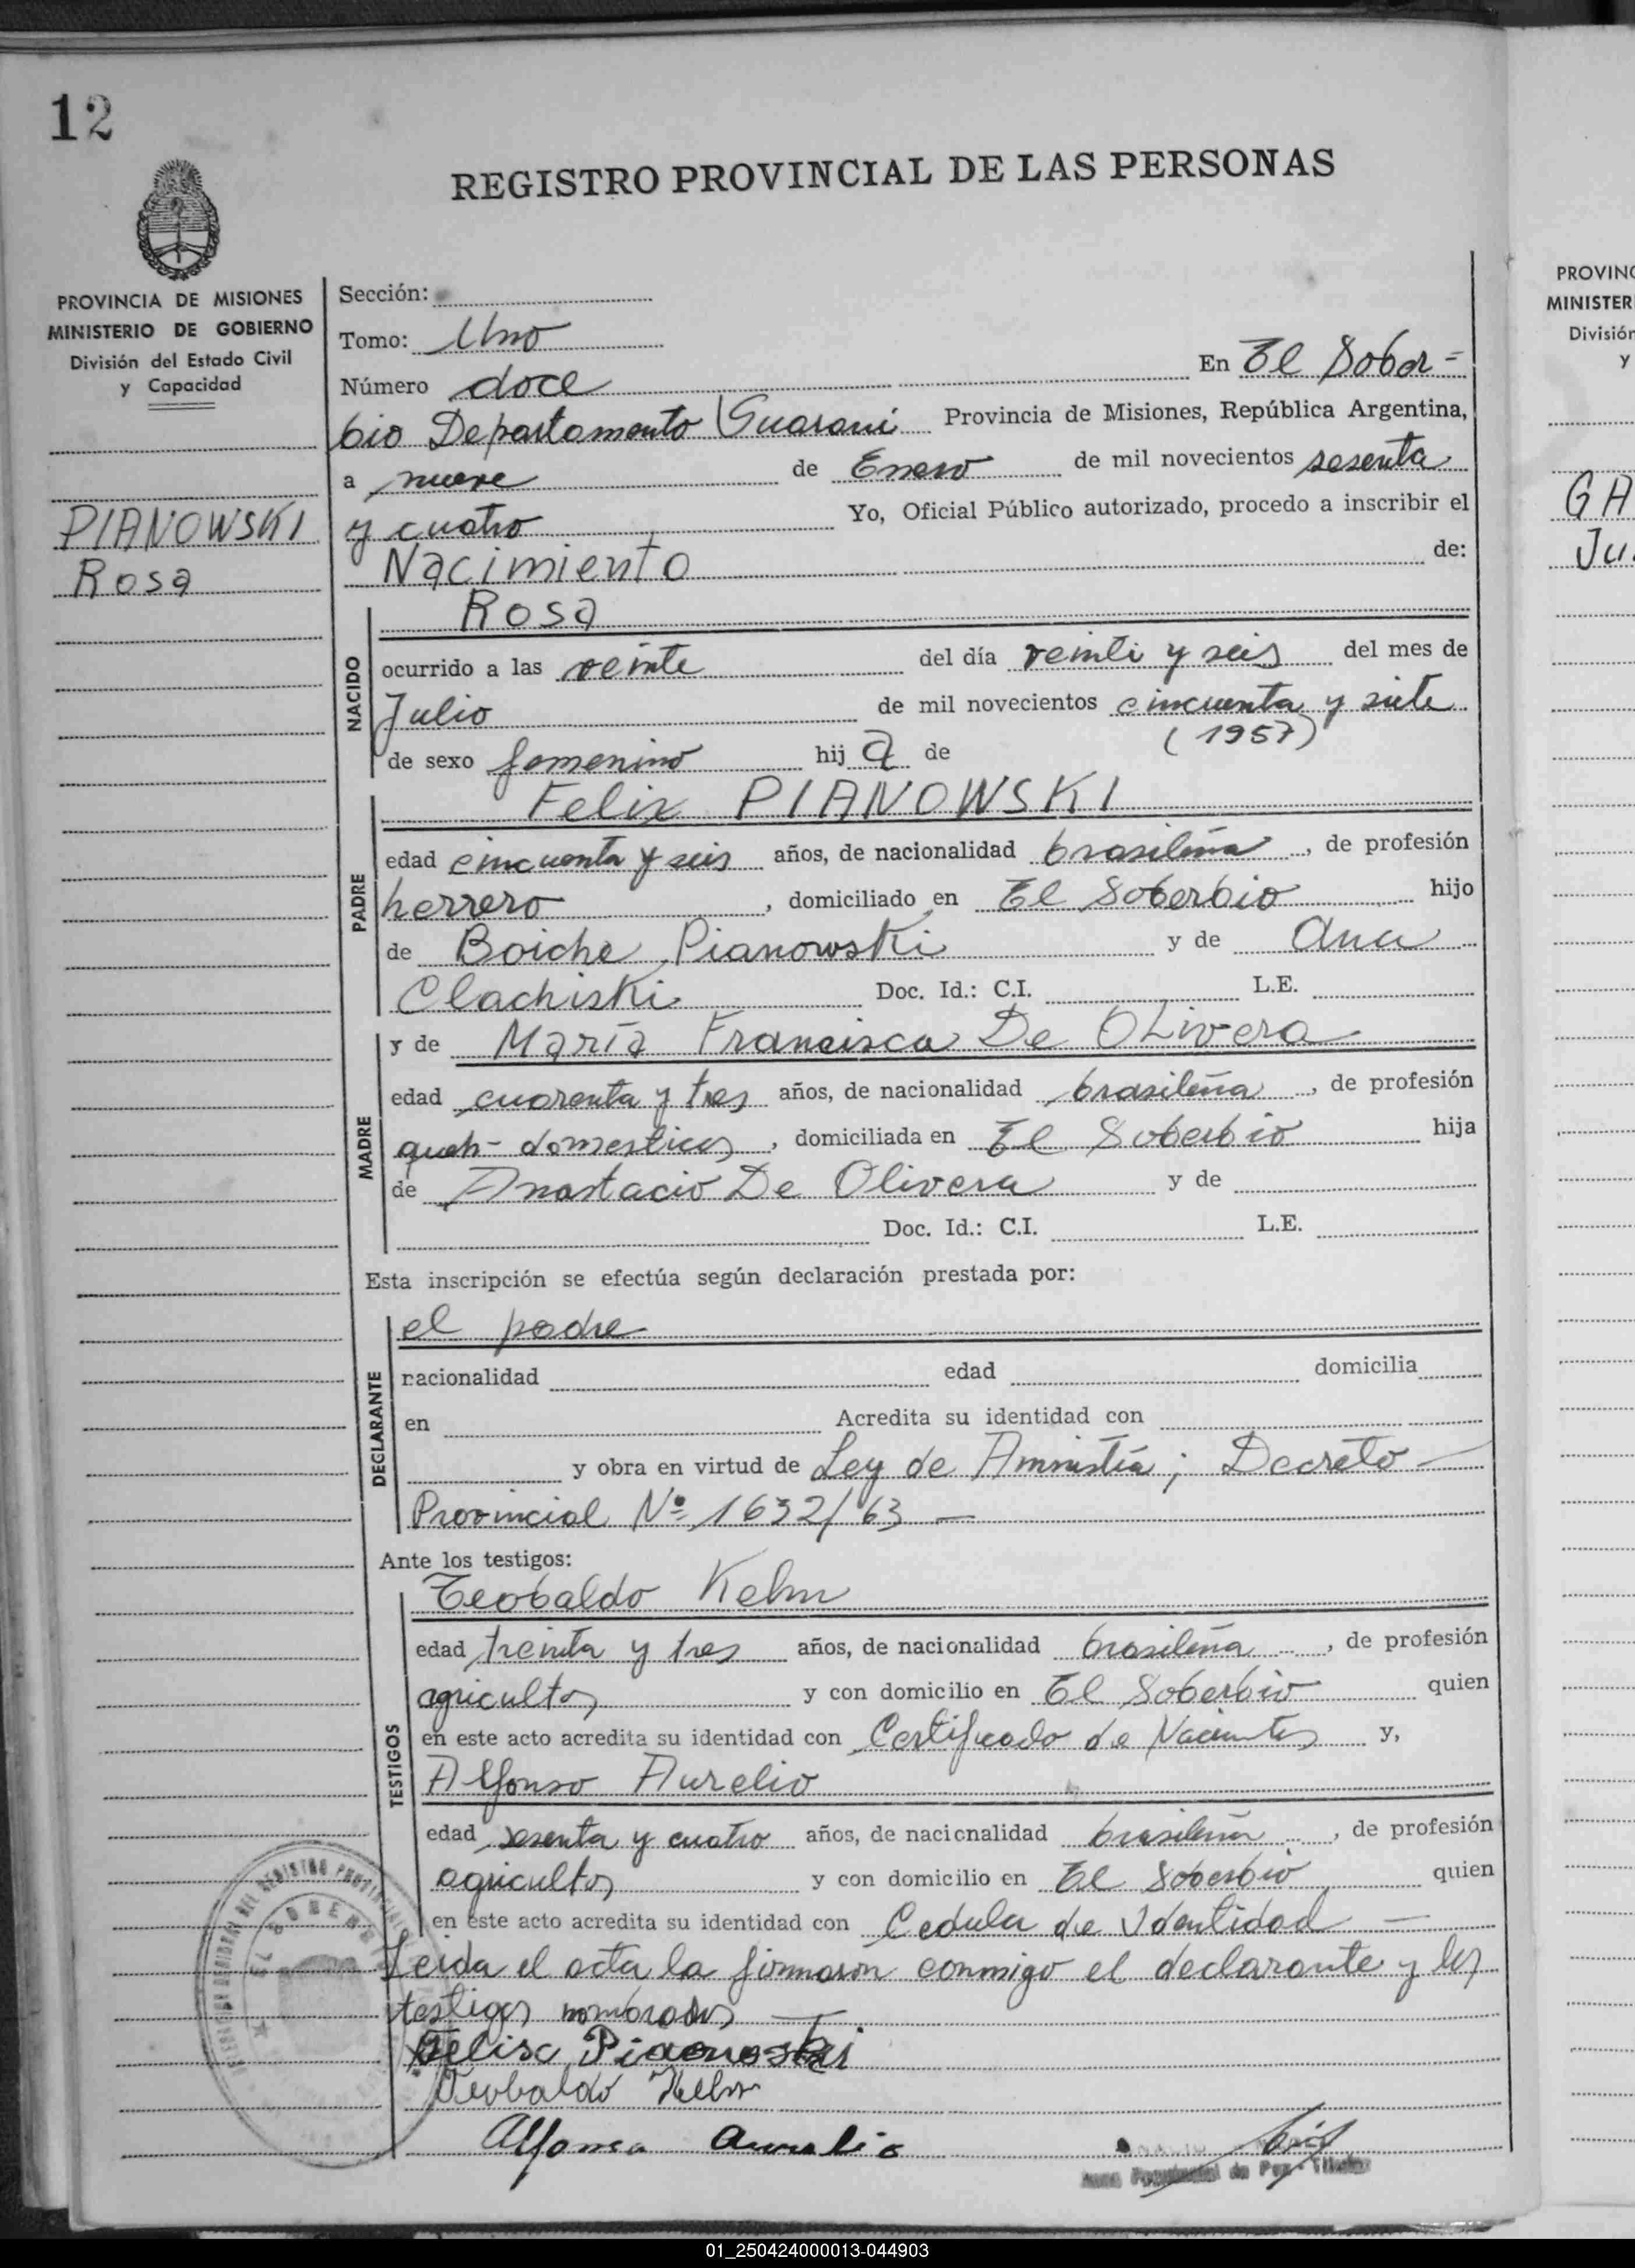 12
REGISTRO PROVINCIAL DE LAS PERSONAS
PROVINCIA DE MISIONES
MINISTERIO DE GOBIERNO
División del Estado Civil
y Capacidad
PIANOWSKI
Rosa
Sección:
Tomo: Uno
Número doce En El Sober=
bio Departamento Guarani Provincia de Misiones, República Argentina,
a nueve de Enero de mil novecientos sesenta
y cuatro Yo, Oficial Público autorizado, procedo a inscribir el
Nacimiento de:
NACIDO
Rosa
ocurrido a las veinte del día veinti y seis del mes de
Julio de mil novecientos cincuenta y siete
(1957)
de sexo femenino hij a de
PADRE
Felix PIANOWSKI
edad cincuenta y seis años, de nacionalidad brasileña, de profesión
herrero, domiciliado en El Soberbio hijo
de Boiche Pianowski y de Ana
Clachiski Doc. Id.: C.I. L.E.
MADRE
y de María Francisca De Olivera
edad cuarenta y tres años, de nacionalidad brasileña, de profesión
queh-domesticos, domiciliada en El Soberbio hija
de Anastacio De Olivera y de
Doc. Id.: C.I. L.E.
Esta inscripción se efectúa según declaración prestada por:
DECLARANTE
el padre
nacionalidad edad domicilia
en Acredita su identidad con
y obra en virtud de Ley de Amnistía; Decreto
Provincial Nº 1632/63 —
Ante los testigos:
TESTIGOS
Teobaldo Kelm
edad treinta y tres años, de nacionalidad brasileña, de profesión
agricultor y con domicilio en El Soberbio quien
en este acto acredita su identidad con Certificado de y,
Alfonso Aurelio
edad sesenta y cuatro años, de nacionalidad brasileña, de profesión
agricultor y con domicilio en El Soberbio quien
en este acto acredita su identidad con Cedula de Identidad —
Leida el acta la firmaron conmigo el declarante y los
testigos nombrados —
Felisc Pianoski
Teobaldo Kelm
Alfonso Aurelio
PROVINC
MINISTER
División
y
GA
Ju
01_250424000013-044903